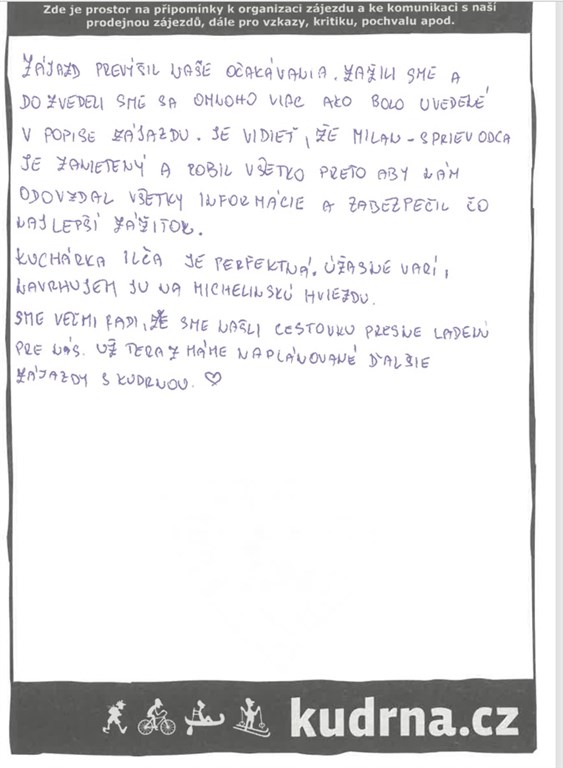 Zde je prostor na připomínky k organizaci zájezdu a ke komunikaci s naší
prodejnou zájezdů, dále pro vzkazy, kritiku, pochvalu apod.
ZÁJAZD PREVÝŠIL NAŠE OČAKÁVANIA. ZAŽILI SME A
DOZVEDELI SME SA OMNOHO VIAC AKO BOLO UVEDENÉ
V POPISE ZÁJAZDU. JE VIDIEŤ, ŽE MILAN - SPRIEVODCA
JE ZANIETENÝ A ROBIL VŠETKO PRETO ABY NÁM
ODOVZDAL VŠETKY INFORMÁCIE A ZABEZPEČIL ČO
NAJLEPŠÍ ZÁŽITOK.
KUCHÁRKA ILČA JE PERFEKTNÁ. ÚŽASNE VARÍ,
NAVRHUJEM JU NA MICHELINSKÚ HVIEZDU.
SME VEĽMI RADI, ŽE SME NAŠLI CESTOVKU PRESNE LADENÚ
PRE NÁS. UŽ TERAZ MÁME NAPLÁNOVANÉ ĎALŠIE
ZÁJAZDY S KUDRNOU. ♡
kudrna.cz